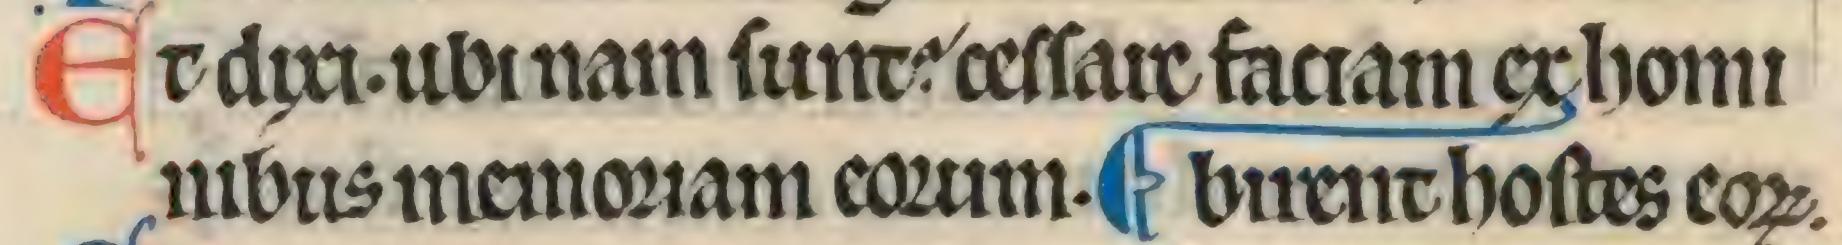 Et dixi. ubi nam sunt? cessare faciam ex homi
nibus memoriam eorum. ¶ birent hostes eoꝝ.